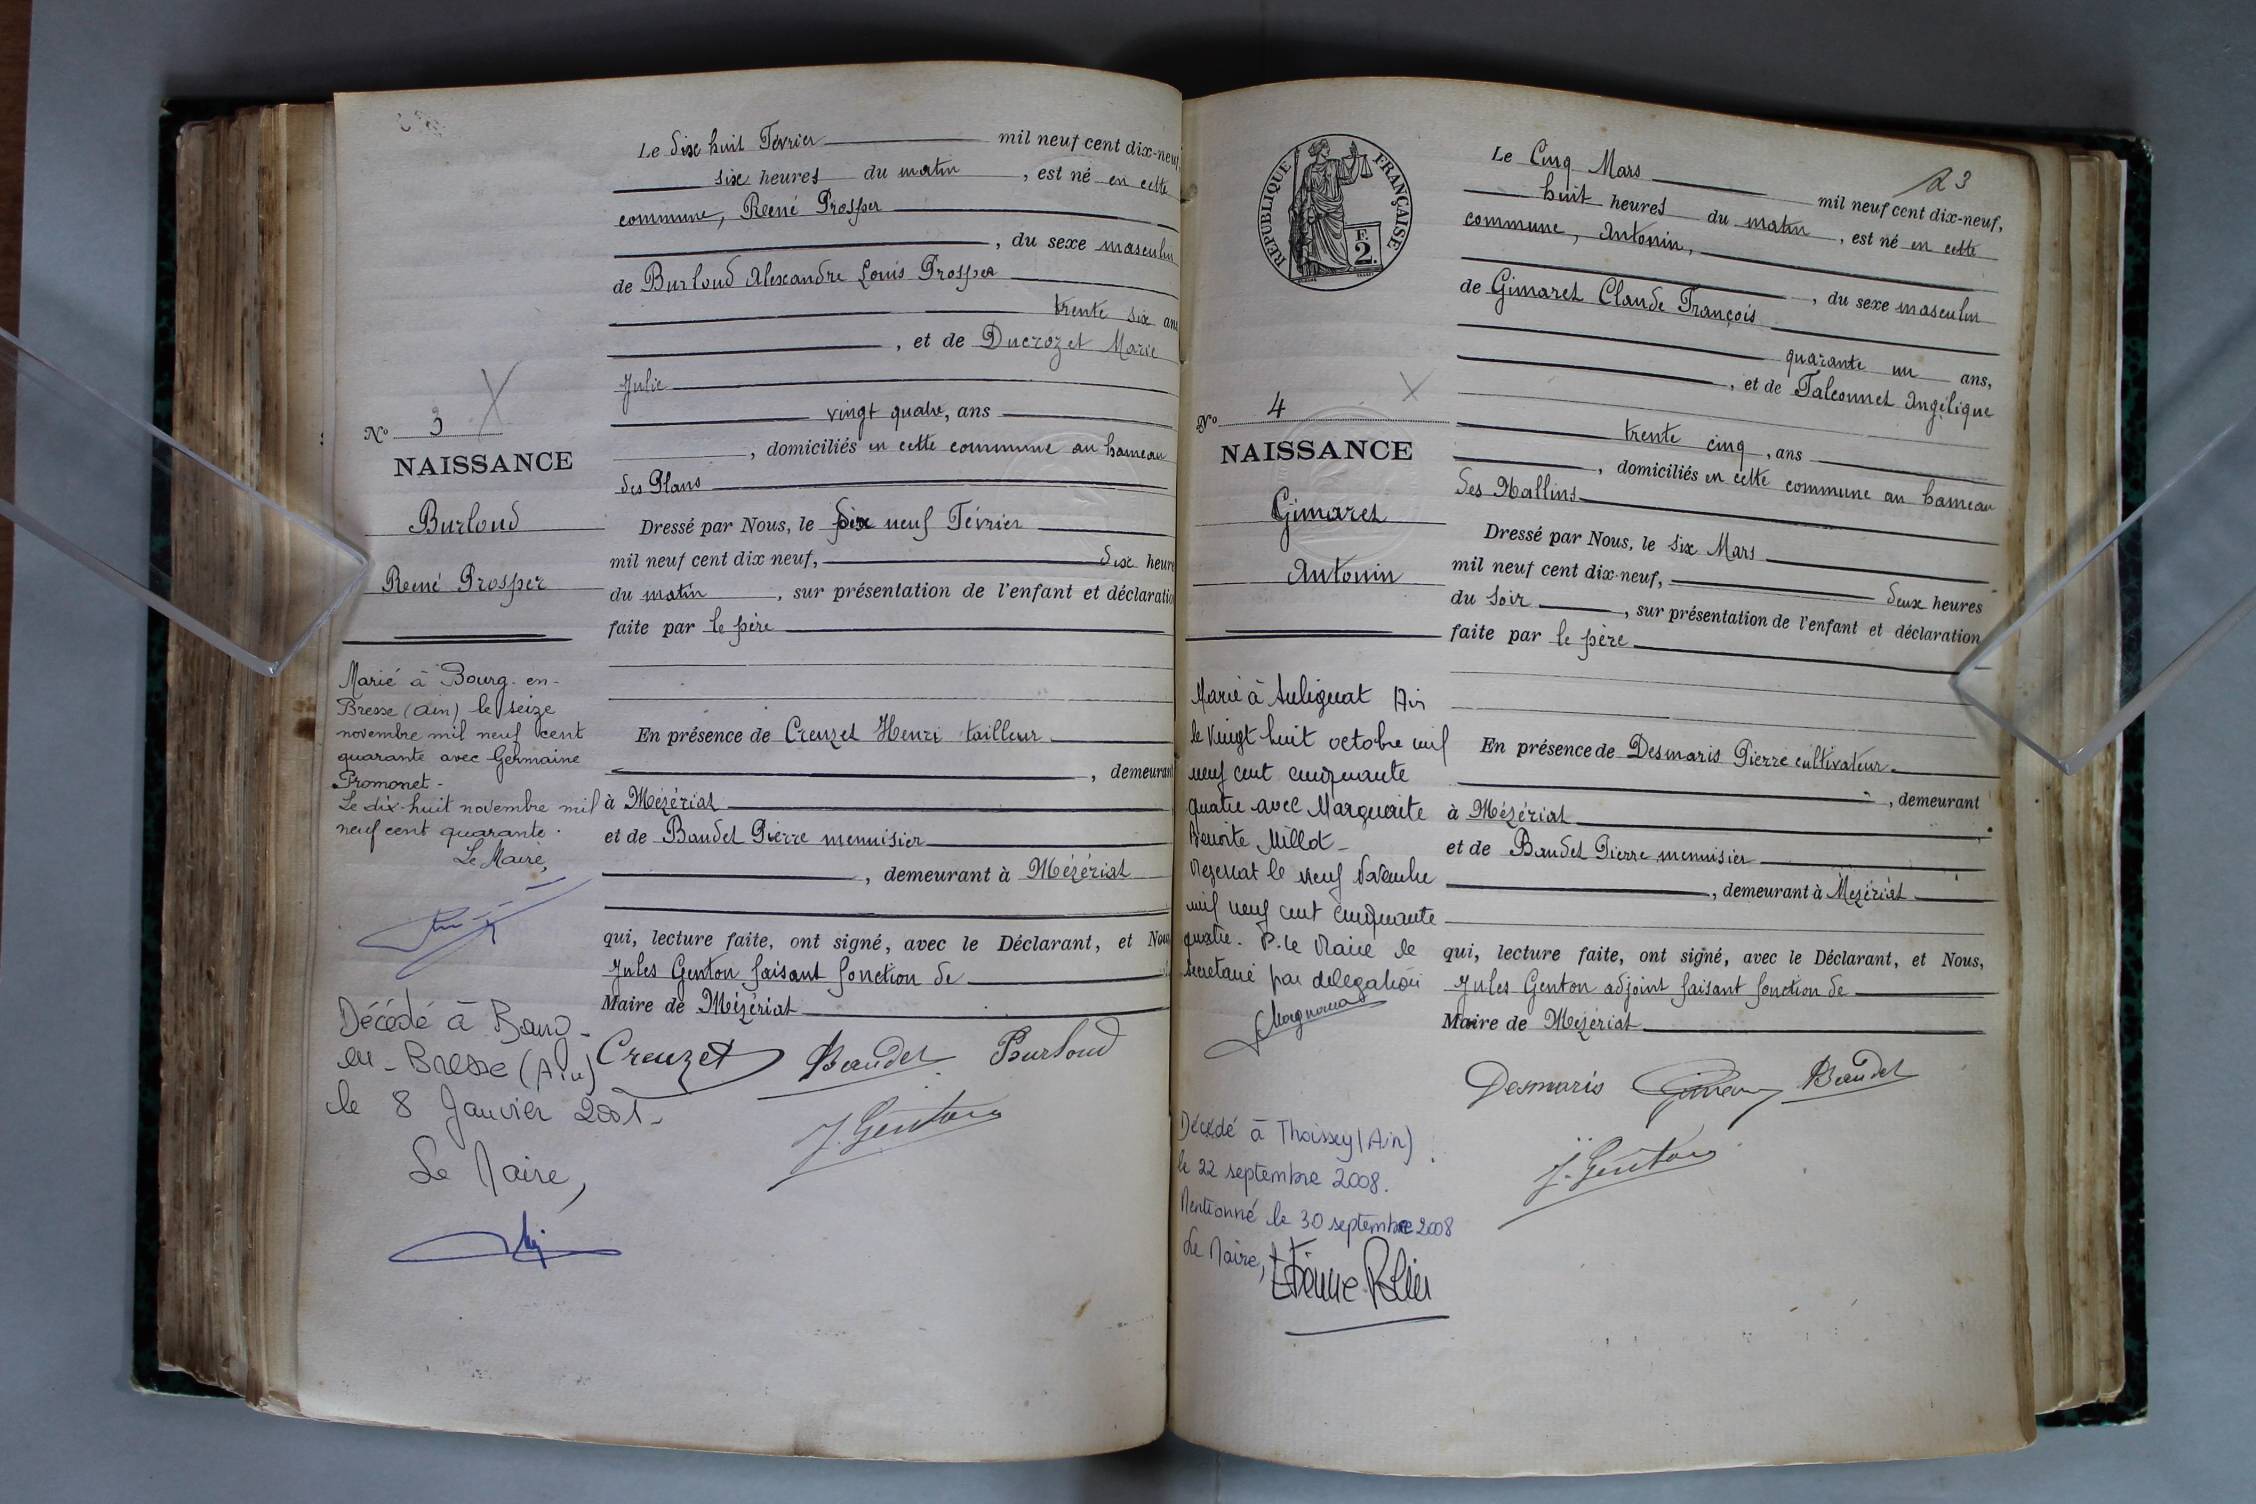 Le dix huit Février mil neuf cent dix-neuf
six heures du matin, est né en cette
commune, René Prosper
, du sexe masculin
de Burloud Alexandre Louis Prosper
trente six ans
, et de Ducrozet Marie
Julie
vingt quatre, ans
, domiciliés en cette commune au hameau
des Plans
Dressé par Nous, le dix neuf Février
mil neuf cent dix neuf, dix heure
du matin, sur présentation de l'enfant et déclaratio
faite par le père
En présence de Creuzet Henri tailleur
, demeurant
à Mézériat
et de Baudet Pierre menuisier
, demeurant à Mézériat
qui, lecture faite, ont signé, avec le Déclarant, et Nous
Jules Genton faisant fonction de
Maire de Mézériat
Creuzet Beaudet Burloud
J. Genton
No 3
NAISSANCE
Burloud
René Prosper
Marié à Bourg-en-
Bresse (Ain) le seize
novembre mil neuf cent
quarante avec Germaine
Promonet-
Le dix-huit novembre mil
neuf cent quarante.
Le Maire,
Décédé à Bourg-
en-Bresse (Ain)
le 8 Janvier 2001-
Le Maire,
23
RÉPUBLIQUE FRANÇAISE
F.
2.
Le Cinq Mars mil neuf cent dix-neuf,
huit heures du matin, est né en cette
commune, Antonin,
, du sexe masculin
de Gimaret Claude François
quarante un ans,
, et de Falconnet Angélique
trente cinq, ans
, domiciliés en cette commune au hameau
des Mallins
Dressé par Nous, le six Mars
mil neuf cent dix-neuf, deux heures
du soir, sur présentation de l'enfant et déclaration
faite par le père
En présence de Desmaris Pierre cultivateur
, demeurant
à Mézériat
et de Baudet Pierre menuisier
, demeurant à Mézériat
qui, lecture faite, ont signé, avec le Déclarant, et Nous,
Jules Genton adjoint faisant fonction de
Maire de Mézériat
Desmaris Beaudet
J. Genton
No 4
NAISSANCE
Gimaret
Antonin
Marié à Sulignat Ain
le vingt huit octobre mil
neuf cent cinquante
quatre avec Marguerite
Benoite Millot-
Mezeriat le neuf Novembre
mil neuf cent cinquante
quatre. P. le Maire le
secretaire par delegation
Décédé à Thoissey (Ain)
le 22 septembre 2008.
Mentionné le 30 septembre 2008
Le Maire, Etienne